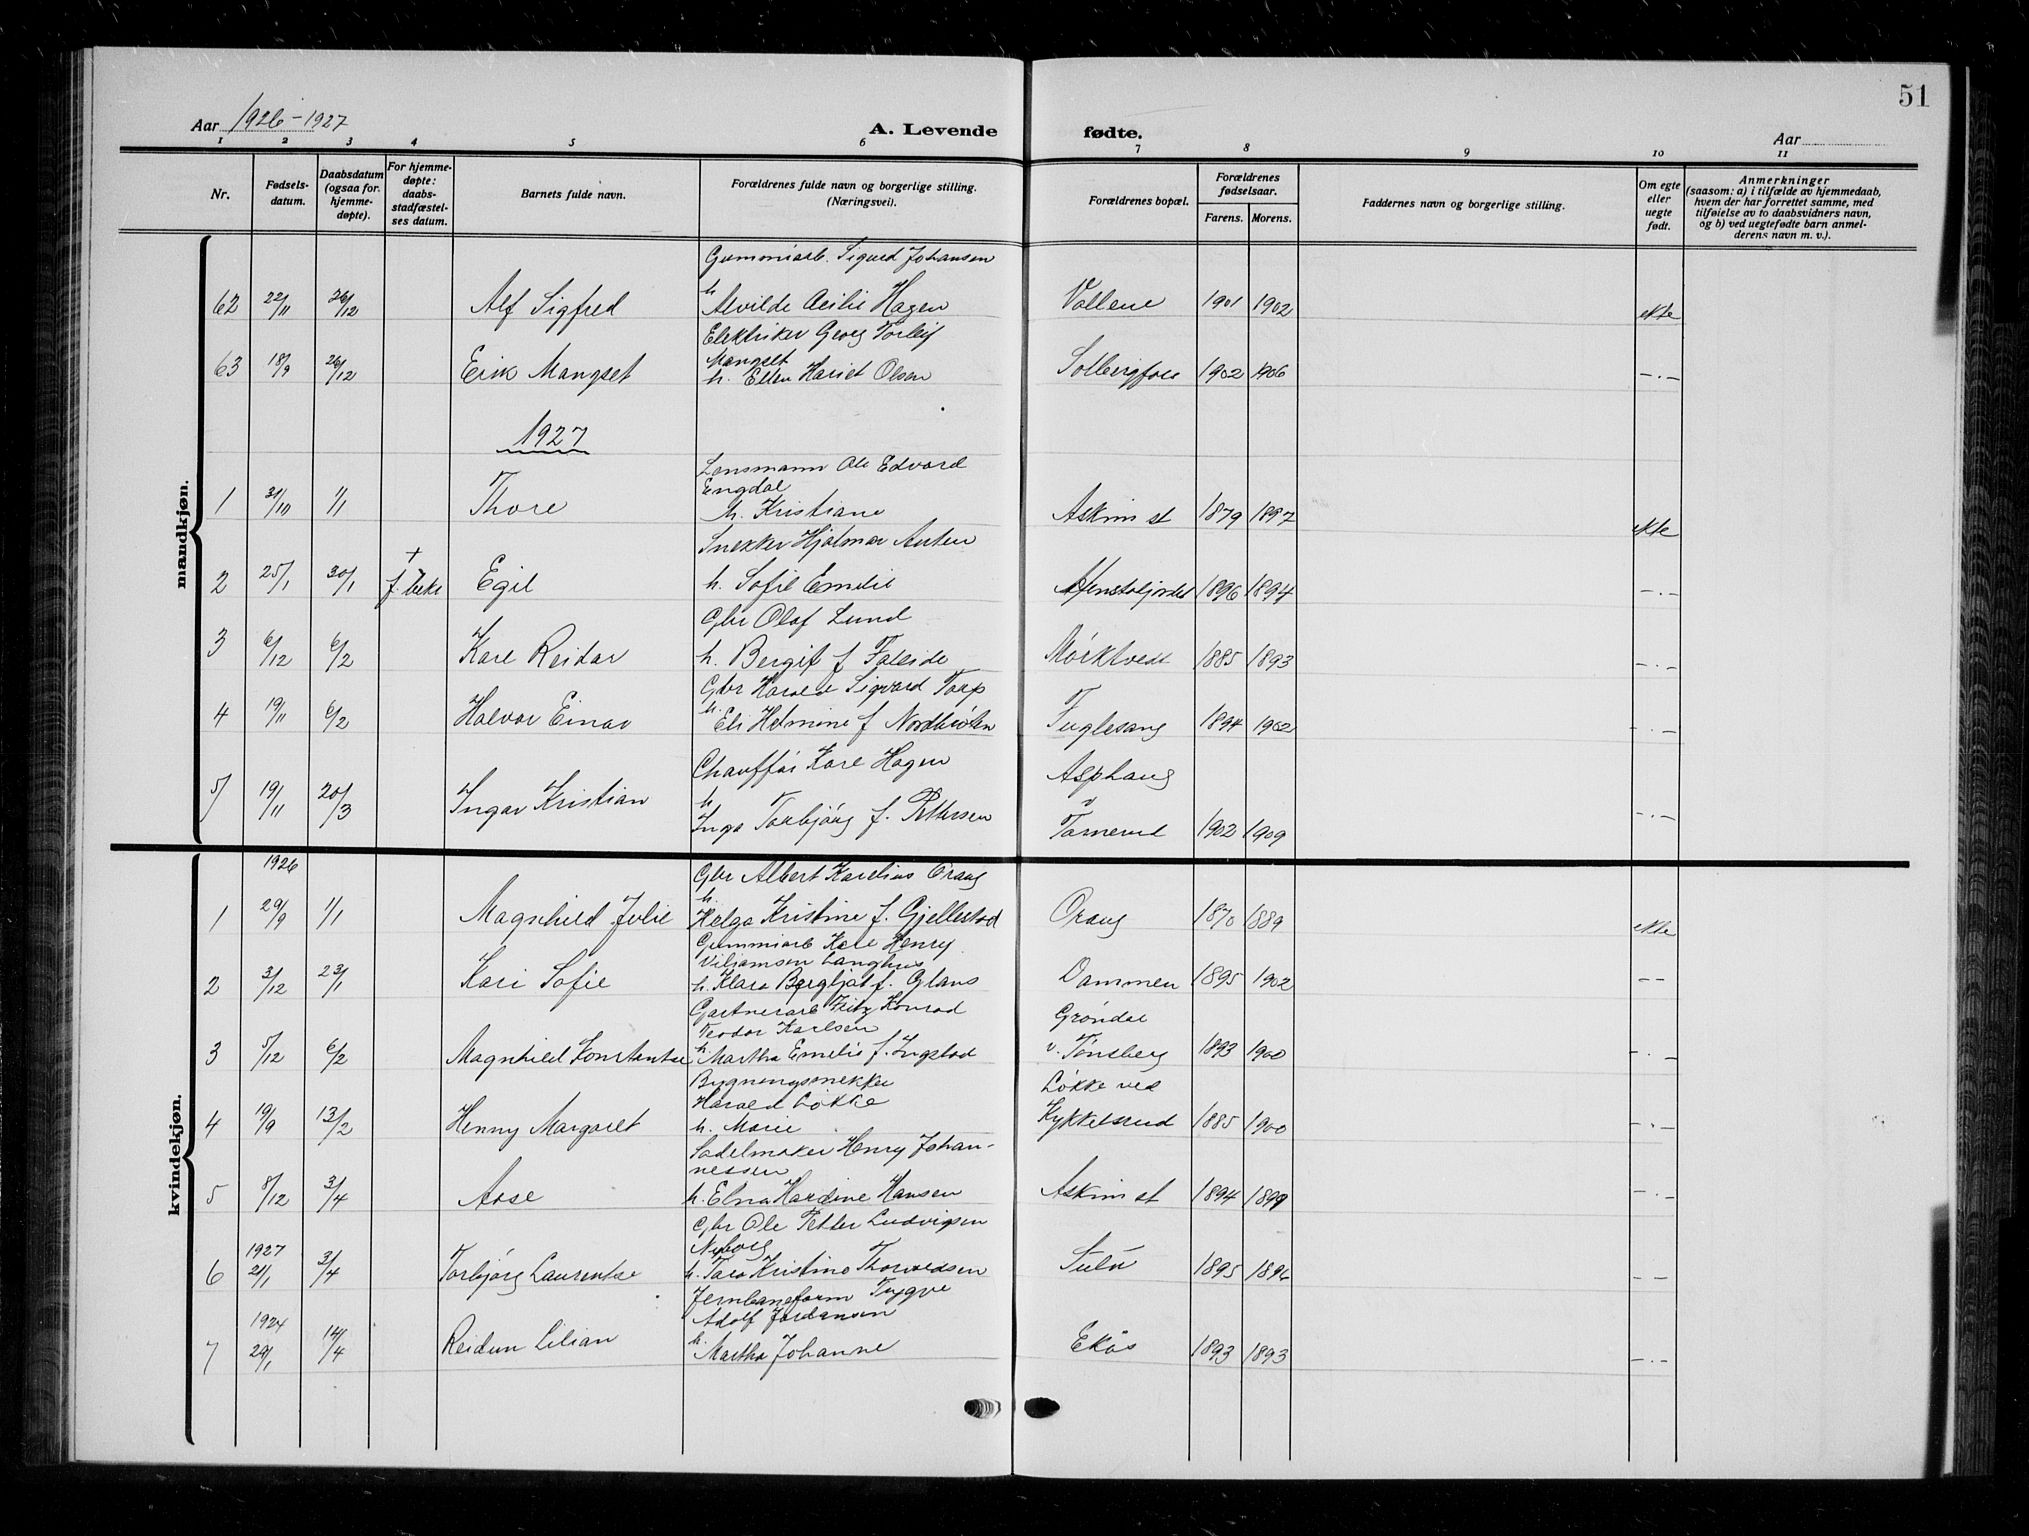 51
Aar 1926-1927
A. Levende
fødte.
Aar
1 2 3 4 5 6 7 8 9 10 11
Nr.
Fødsels-
datum.
Daabsdatum
(ogsaa for
hjemme-
døpte).
For hjemme-
døpte:
daabs-
stadfæstel-
ses datum.
Barnets fulde navn.
Forældrenes fulde navn og borgerlige stilling.
(Næringsvei).
Forældrenes bopæl.
Forældrenes
fødselsaar.
Farens. Morens.
Faddernes navn og borgerlige stilling.
Om egte
eller
uegte
født.
Anmerkninger
(saasom: a) i tilfælde av hjemmedaab,
hvem der har forrettet samme, med
tilføielse av to daabsvidners navn,
og b) ved uegtefødte barn anmel-
derens navn m. v.).
mandkjøn.
Gummiarb. Sigurd Johansen
h.
62 22/11 26/12 Alf Sigfred Alvilde Cecilie Hagen Vollene 1901 1902 ekte
Elektriker Georg Torleif
Mangset
63 18/9 26/12 Erik Mangset h. Ellen Hariet Olsen Solbergfoss 1902 1906 -.-
1927
Lensmann Ole Edvard
Engdal
1 31/10 1/1 Thore h. Kristiane Askim st 1879 1897 ekte
Snekker Hjalmar Anten
+
2 25/1 30/1 f. beke Egil h. Sofie Emilie 1896 1894 -.-
Gbr Olaf Lund
3 6/12 6/2 Kåre Reidar h. Bergit f Faleide Mørktvedt 1885 1893 -.-
Gbr Harald Sigvard Torp
h.
4 19/11 6/2 Halvor Einar Eli Helmine f Nordbråten Fuglesang 1894 1902 -.-
Chauffør Kåre Hagen Asphaug
h. v
5 19/11 20/3 Ingar Kristian Inga Torbjørg f. Pettersen Tornerud 1902 1909 -.-
kvindekjøn.
1926
Gbr Albert Karelius Oraug
h.
1 29/9 1/1 Magnhild Julie Helga Kristine f. Gjellestad Oraug 1870 1889 ekte
Gummiarb Kåre Henry
Viljamsen Langhus
2 3/12 23/1 Kari Sofie h. Klara Bergljot f. Glans Dammen 1895 1902 --
Gartnerarb Fritz Konrad Grøndal
Teodor Karlsen
3 5/12 6/2 Magnhild Konstanse h. Martha Emelie f. Ingstad v. Tønsberg 1893 1900 -.-
Bygningssnekker Løkke ved
Harald Løkke
4 19/9 13/2 Henny Margaret h. Marie Kykkelsrud 1885 1900 -.-
Sadelmaker Henry Johan-
nessen
5 8/12 3/4 Aase h. Elna Hardine Hansen Askim st 1894 1899 -.-
Gbr Ole Petter Ludvigsen
Nyborg
1927
6 21/1 3/4 Torbjørg Laurentse h. Tara Kristine Thorvaldsen 1895 1896 --
Jernbaneform Tygve
Adolf Jordansen
1924
h.
7 29/1 14/4 Reidun Lilian Martha Johanne Ekås 1893 1893 -.-